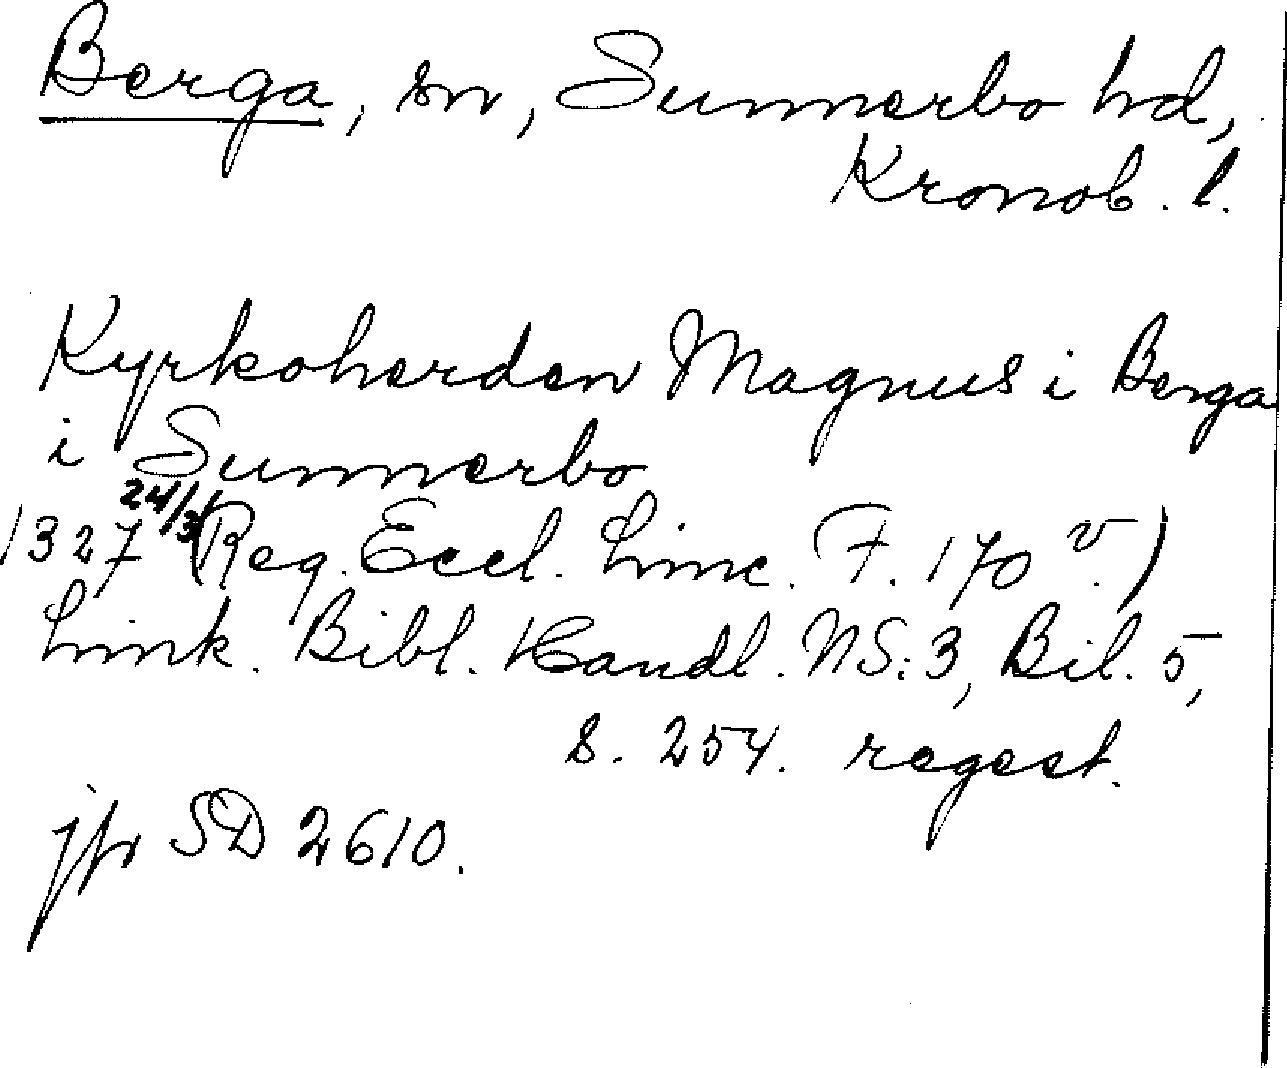 Berga, sn, Sunnerbo hd,
Kronob. l.
Kyrkoherden Magnus i Berga
i Sunnerbo
1327 24/3 (Reg. Eccl. Linc. F. 170 v.)
Link. Bibl. Handl. NS: 3, Bil. 5,
s. 254. regest.
jfr SD 2610.